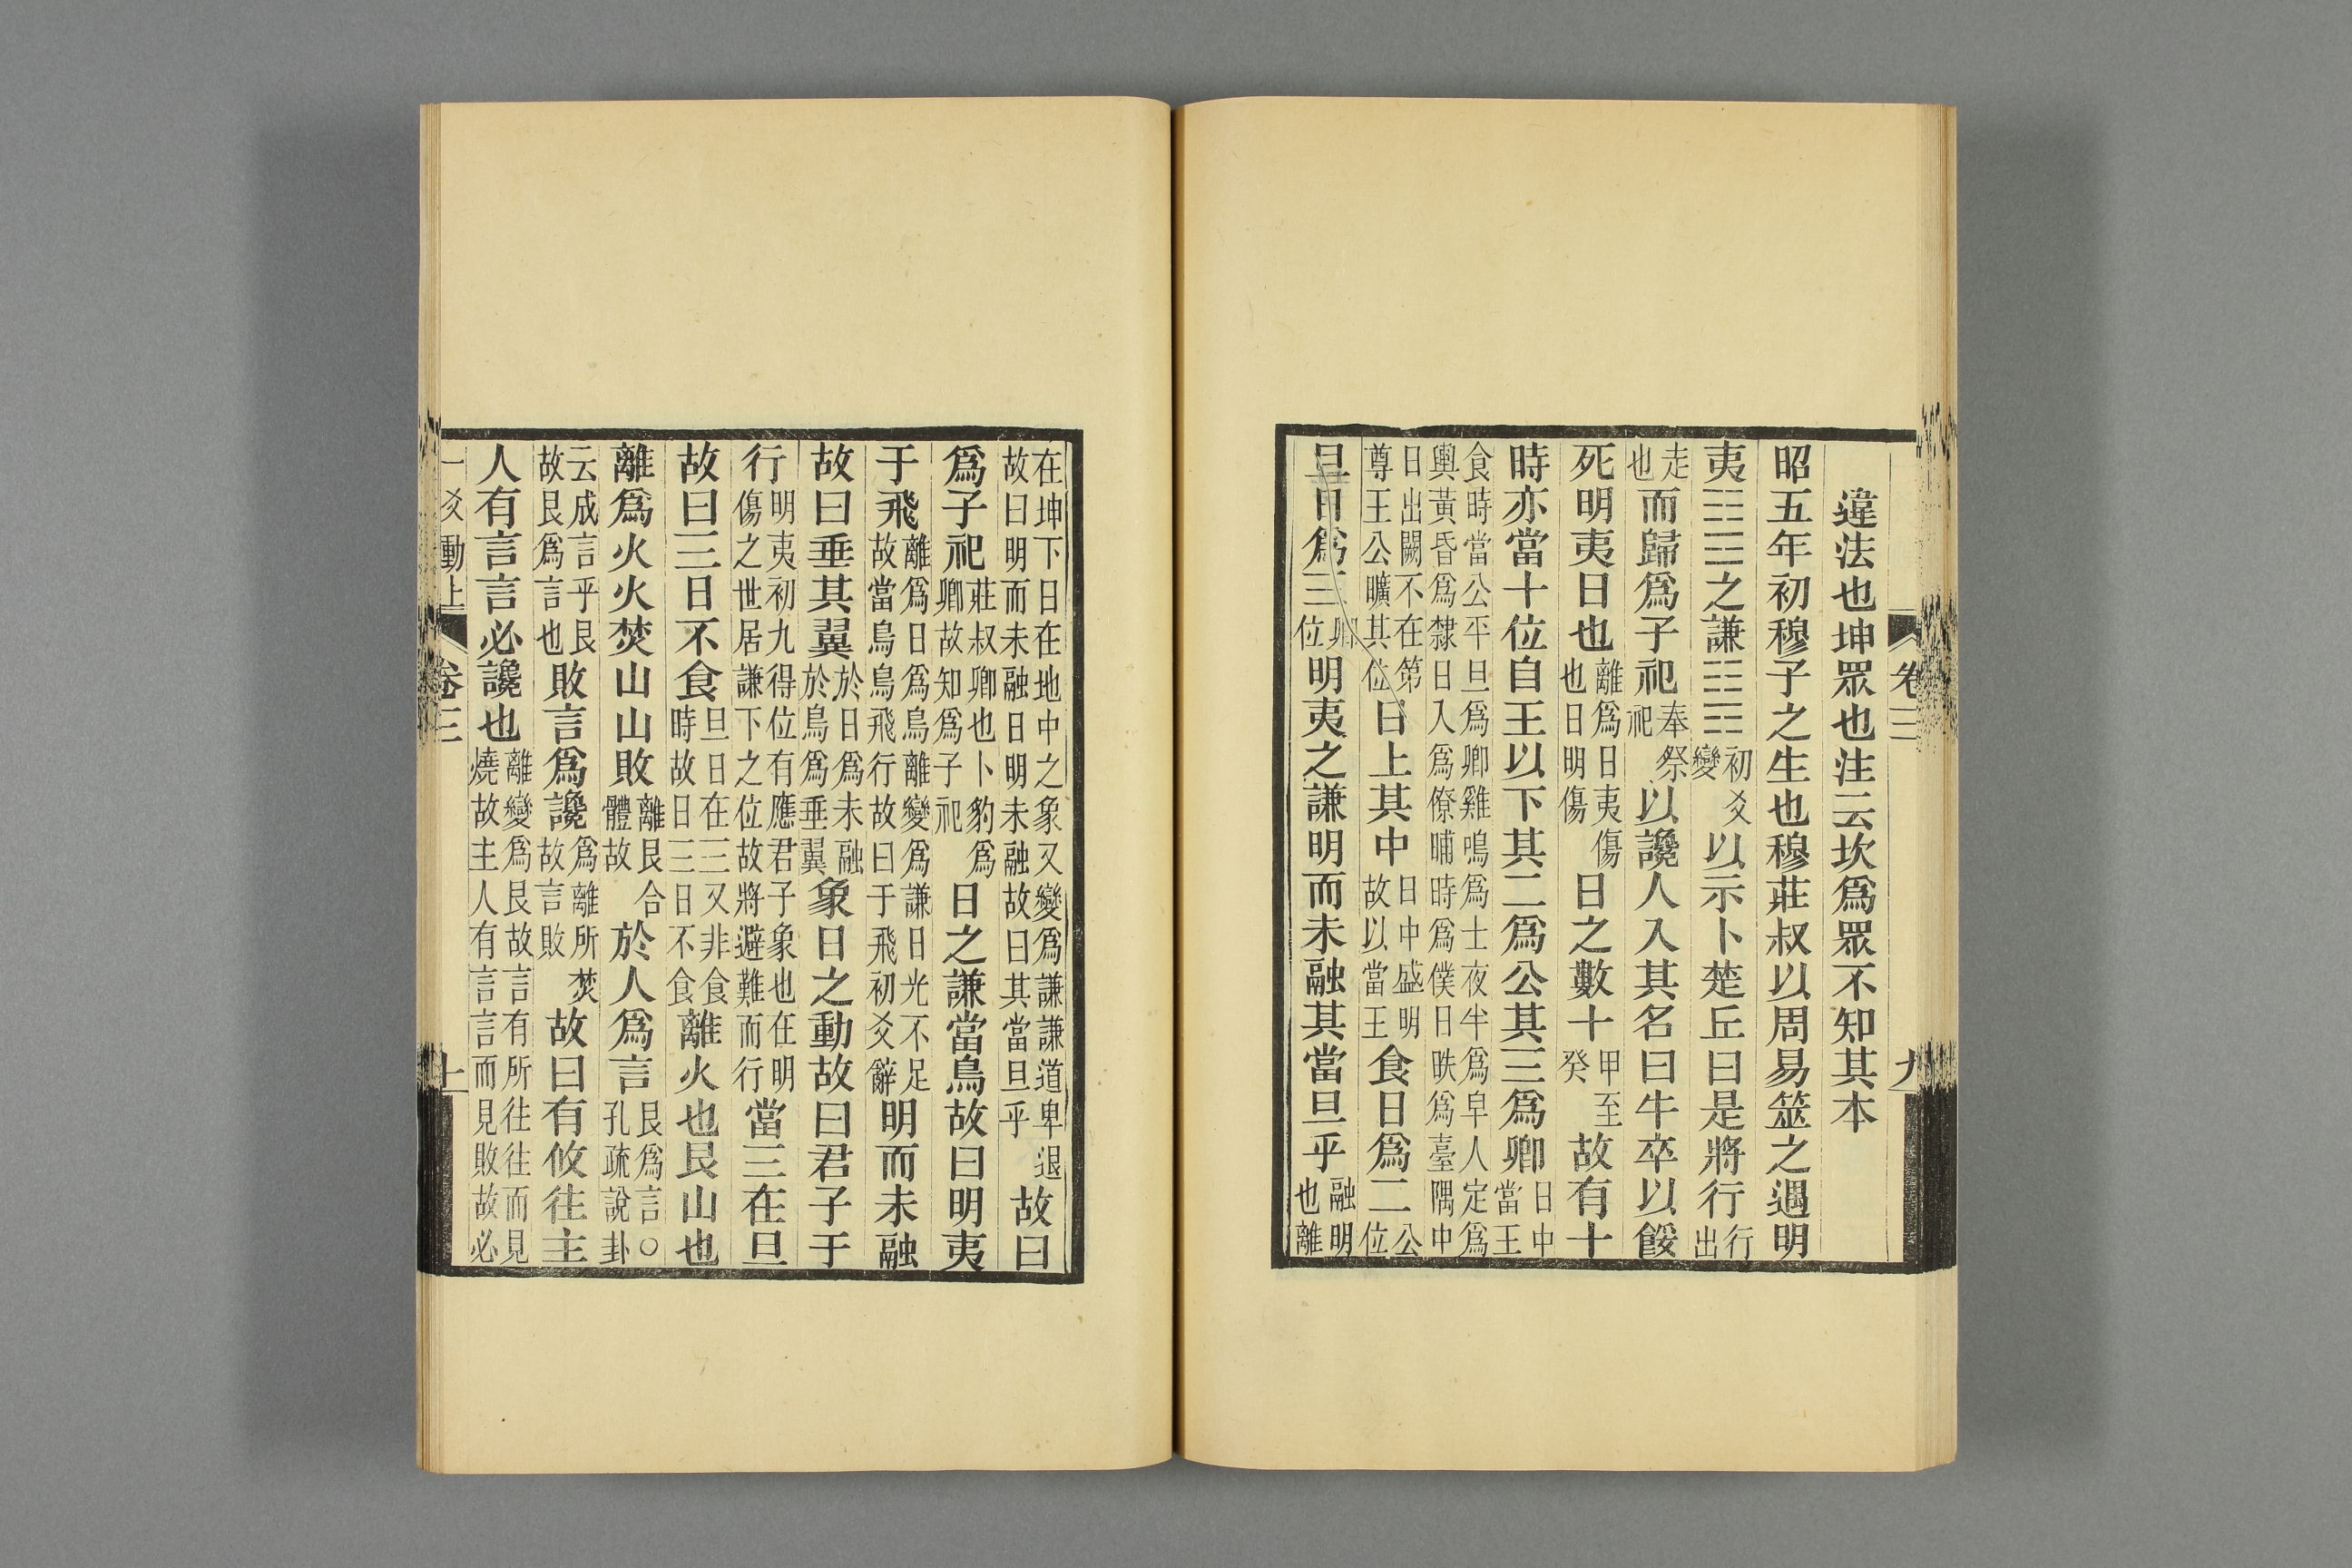 卷三 九
違法也坤眾也注云坎爲眾不知其本
昭五年初穆子之生也穆莊叔以周易筮之遇明
夷䷣之謙䷎初爻變以示卜楚丘曰是將行行出
走也而歸爲子祀奉祭祀以讒人入其名曰牛卒以餒
死明夷日也離爲日夷傷也日明傷日之數十甲至癸故有十
時亦當十位自王以下其二爲公其三爲卿日中當王
食時當公平旦爲卿雞鳴爲士夜半爲皁人定爲輿黃昏爲隸日入爲僚晡時爲僕日昳爲臺隅中
日出闕不在第尊王公曠其位日上其中日中盛明故以當王食日爲二公位
旦日爲三卿位明夷之謙明而未融其當旦乎融明也離
在坤下日在地中之象又變爲謙謙道卑退故曰明而未融日明未融故曰其當旦乎故曰
爲子祀莊叔卿也卜豹爲卿故知爲子祀日之謙當鳥故曰明夷
于飛離爲日爲鳥離變爲謙日光不足故當鳥鳥飛行故曰于飛初爻辭明而未融
故曰垂其翼於日爲未融於鳥爲垂翼象日之動故曰君子于
行明夷初九得位有應君子象也在明傷之世居謙下之位故將避難而行當三在旦
故曰三日不食旦日在三又非食時故曰三日不食離火也艮山也
離爲火火焚山山敗離艮合體故於人爲言艮爲言○孔疏說卦
云成言乎艮故艮爲言也敗言爲讒爲離所焚故言敗故曰有攸往主
人有言言必讒也離變爲艮故言有所往往而見燒故主人有言言而見敗故必
一爻動止 卷三